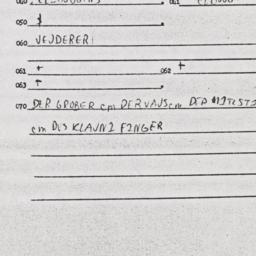 050 1
060 VEJDERERI
061 + 062 +
063 +
070 DER GROBER em DER VAJS em DER MITEST
em DIS KLAJNI FINGER